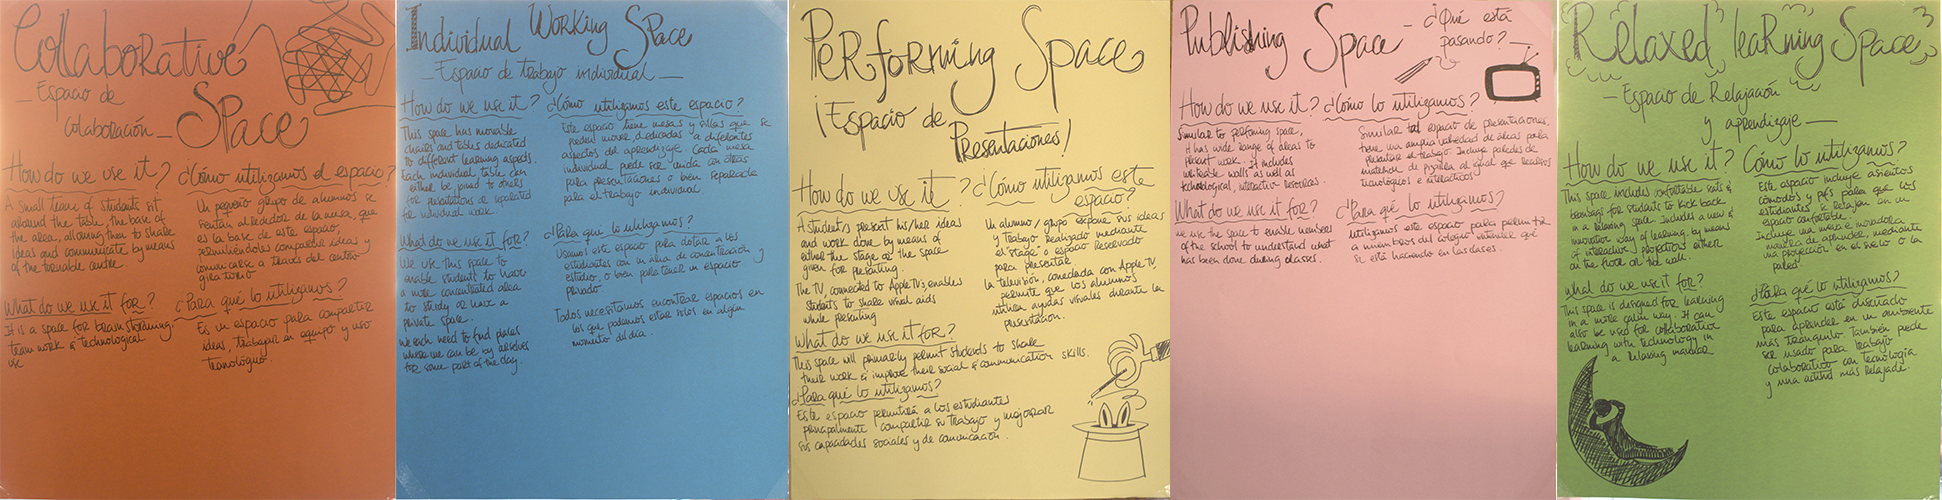 Collaborative
Space
— Espacio de
colaboración —
How do we use it?
A small team of students sit
around the table, the base of
the area, allowing then to share
ideas and communicate by means
of the turnable centre.
What do we use it for?
It is a space for brain storming,
team work & technological
use
¿Cómo utilizamos el espacio?
Un pequeño grupo de alumnos se
sentan alrededor de la mesa, que
es la base de este espacio,
permitiendoles compartir ideas y
comunicarse a través del centro
giratorio
¿Para qué lo utilizamos?
Es un espacio para compartir
ideas, trabajar en equipo y uso
Individual Working Space
— Espacio de trabajo individual —
How do we use it?
This space has movable
chairs and tables dedicated
to different learning aspects.
Each individual table can
either be joined to others
for presentations or separated
for individual work.
What do we use it for?
We use this space to
enable students to have
a more concentrated area
to study or have a
private space.
We each need to find places
where we can be by ourselves
for some part of the day.
¿Cómo utilizamos este espacio?
Este espacio tiene mesas y sillas que se
pueden mover dedicadas a diferentes
aspectos del aprendizaje. Cada mesa
individual puede ser unida con otras
para presentaciones o bien separada
para el trabajo individual.
¿Para qué lo utilizamos?
Usamos este espacio para dotar a los
estudiantes con un area de concentración y
estudio, o bien para tener un espacio
privado.
Todos necesitamos encontrar espacios en
los que podamos estar solos en algún
momento del día.
Performing Space
¡Espacio de
Presentaciones!
How do we use it?
A student/s present his/her ideas
and work done by means of
either the stage or the space
given for presenting.
The TV, connected to Apple TV, enables
students to share visual aids
while presenting
What do we use it for?
This space will primarily permit students to share
their work & improve their social & communication skills.
¿Cómo utilizamos este
espacio?
Un alumno/grupo expone sus ideas
y trabajo realizado mediante
el "stage" o espacio reservado
para presentar
la televisión, conectada con Apple TV,
permite que los alumnos
utilicen ayudas visuales durante la
presentación.
¿Para qué lo utilizamos?
Este espacio permitirá a los estudiantes
principalmente compartir su trabajo y mejorar
sus capacidades sociales y de comunicación.
Publishing Space — ¿Qué está
pasando?
How do we use it?
Similar to perfoming space,
it has wide range of areas to
present work. it includes
writeable walls as well as
technological, interactive resources.
What do we use it for?
we use the space to enable members
of the school to understand what
has been done during classes.
¿Cómo lo utilizamos?
Similar al espacio de presentaciones.
tiene una amplia variedad de áreas para
presentar el trabajo. Incluye paredes de
material de pizarra al igual que recursos
tecnológicos e interactivos
¿Para qué lo utilizamos?
utilizamos este espacio para permitir
a miembros del colegio entender qué
se está haciendo en las clases.
Relaxed learning Space
— Espacio de Relajación
y aprendizaje —
How do we use it?
This space includes comfortable seats &
beanbags for students to kick back
in a relaxing space. Includes a new &
innovative way of learning, by means
of interactive projections either
on the floor or the wall.
What do we use it for?
This space is designed for learning
in a more calm way. It can
also be used for collaborative
learning with technology in
a relaxing manner
Cómo lo utilizamos?
Este espacio incluye asientos
cómodos y pufs para que los
estudiantes se relajen en un
espacio confortable.
Incluye una nueva e innovadora
manera de aprender, mediante
una proyección en el suelo o la
pared.
¿Para qué lo utilizamos?
Este espacio está diseñado
para aprender en un ambiente
más tranquilo. También puede
ser usado para trabajo
colaborativo con tecnología
y una actitud más relajada.